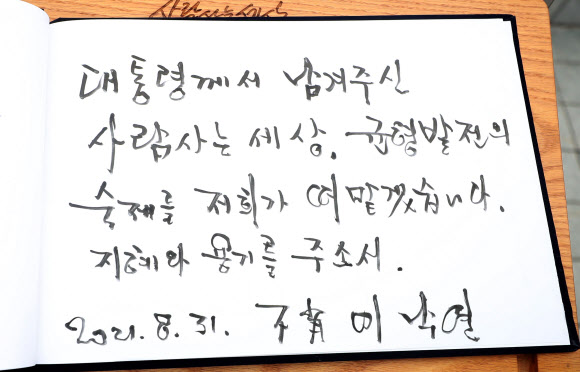 사람사는세상
대통령께서 남겨주신
사람사는 세상, 균형발전의
숙제를 저희가 떠맡겠습니다.
지혜와 용기를 주소서.
2021. 8. 31. 不肖 이 낙연